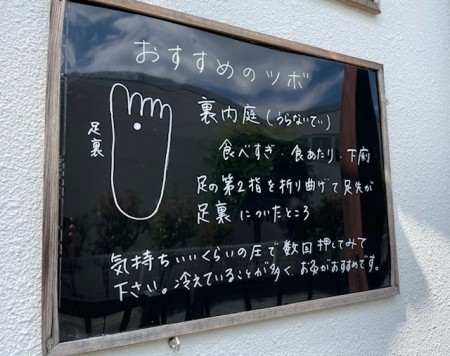 おすすめのツボ
足裏
裏内庭(うらないてい)
食べすぎ・食あたり・下痢
足の第2指を折り曲げて足先が
足裏についたところ
気持ちいいくらいの圧で数回押してみて
下さい。冷えていることが多く、お灸がおすすめです。